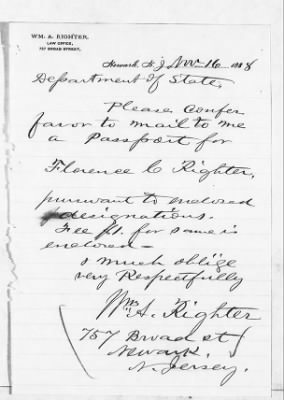 WM. A. RIGHTER,
LAW OFFICE,
757 BROAD STREET,
Newark, N. J. Nov 16 1888
Department of State,
Please confer
favor to mail to me
a Passport for
Florence C Righter,
pursuant to enclosed
designations.
Fee $1. for same is
enclosed —
& much oblige
very Respectfully
Wm A. Righter
757 Broad st
Newark,
N. Jersey.